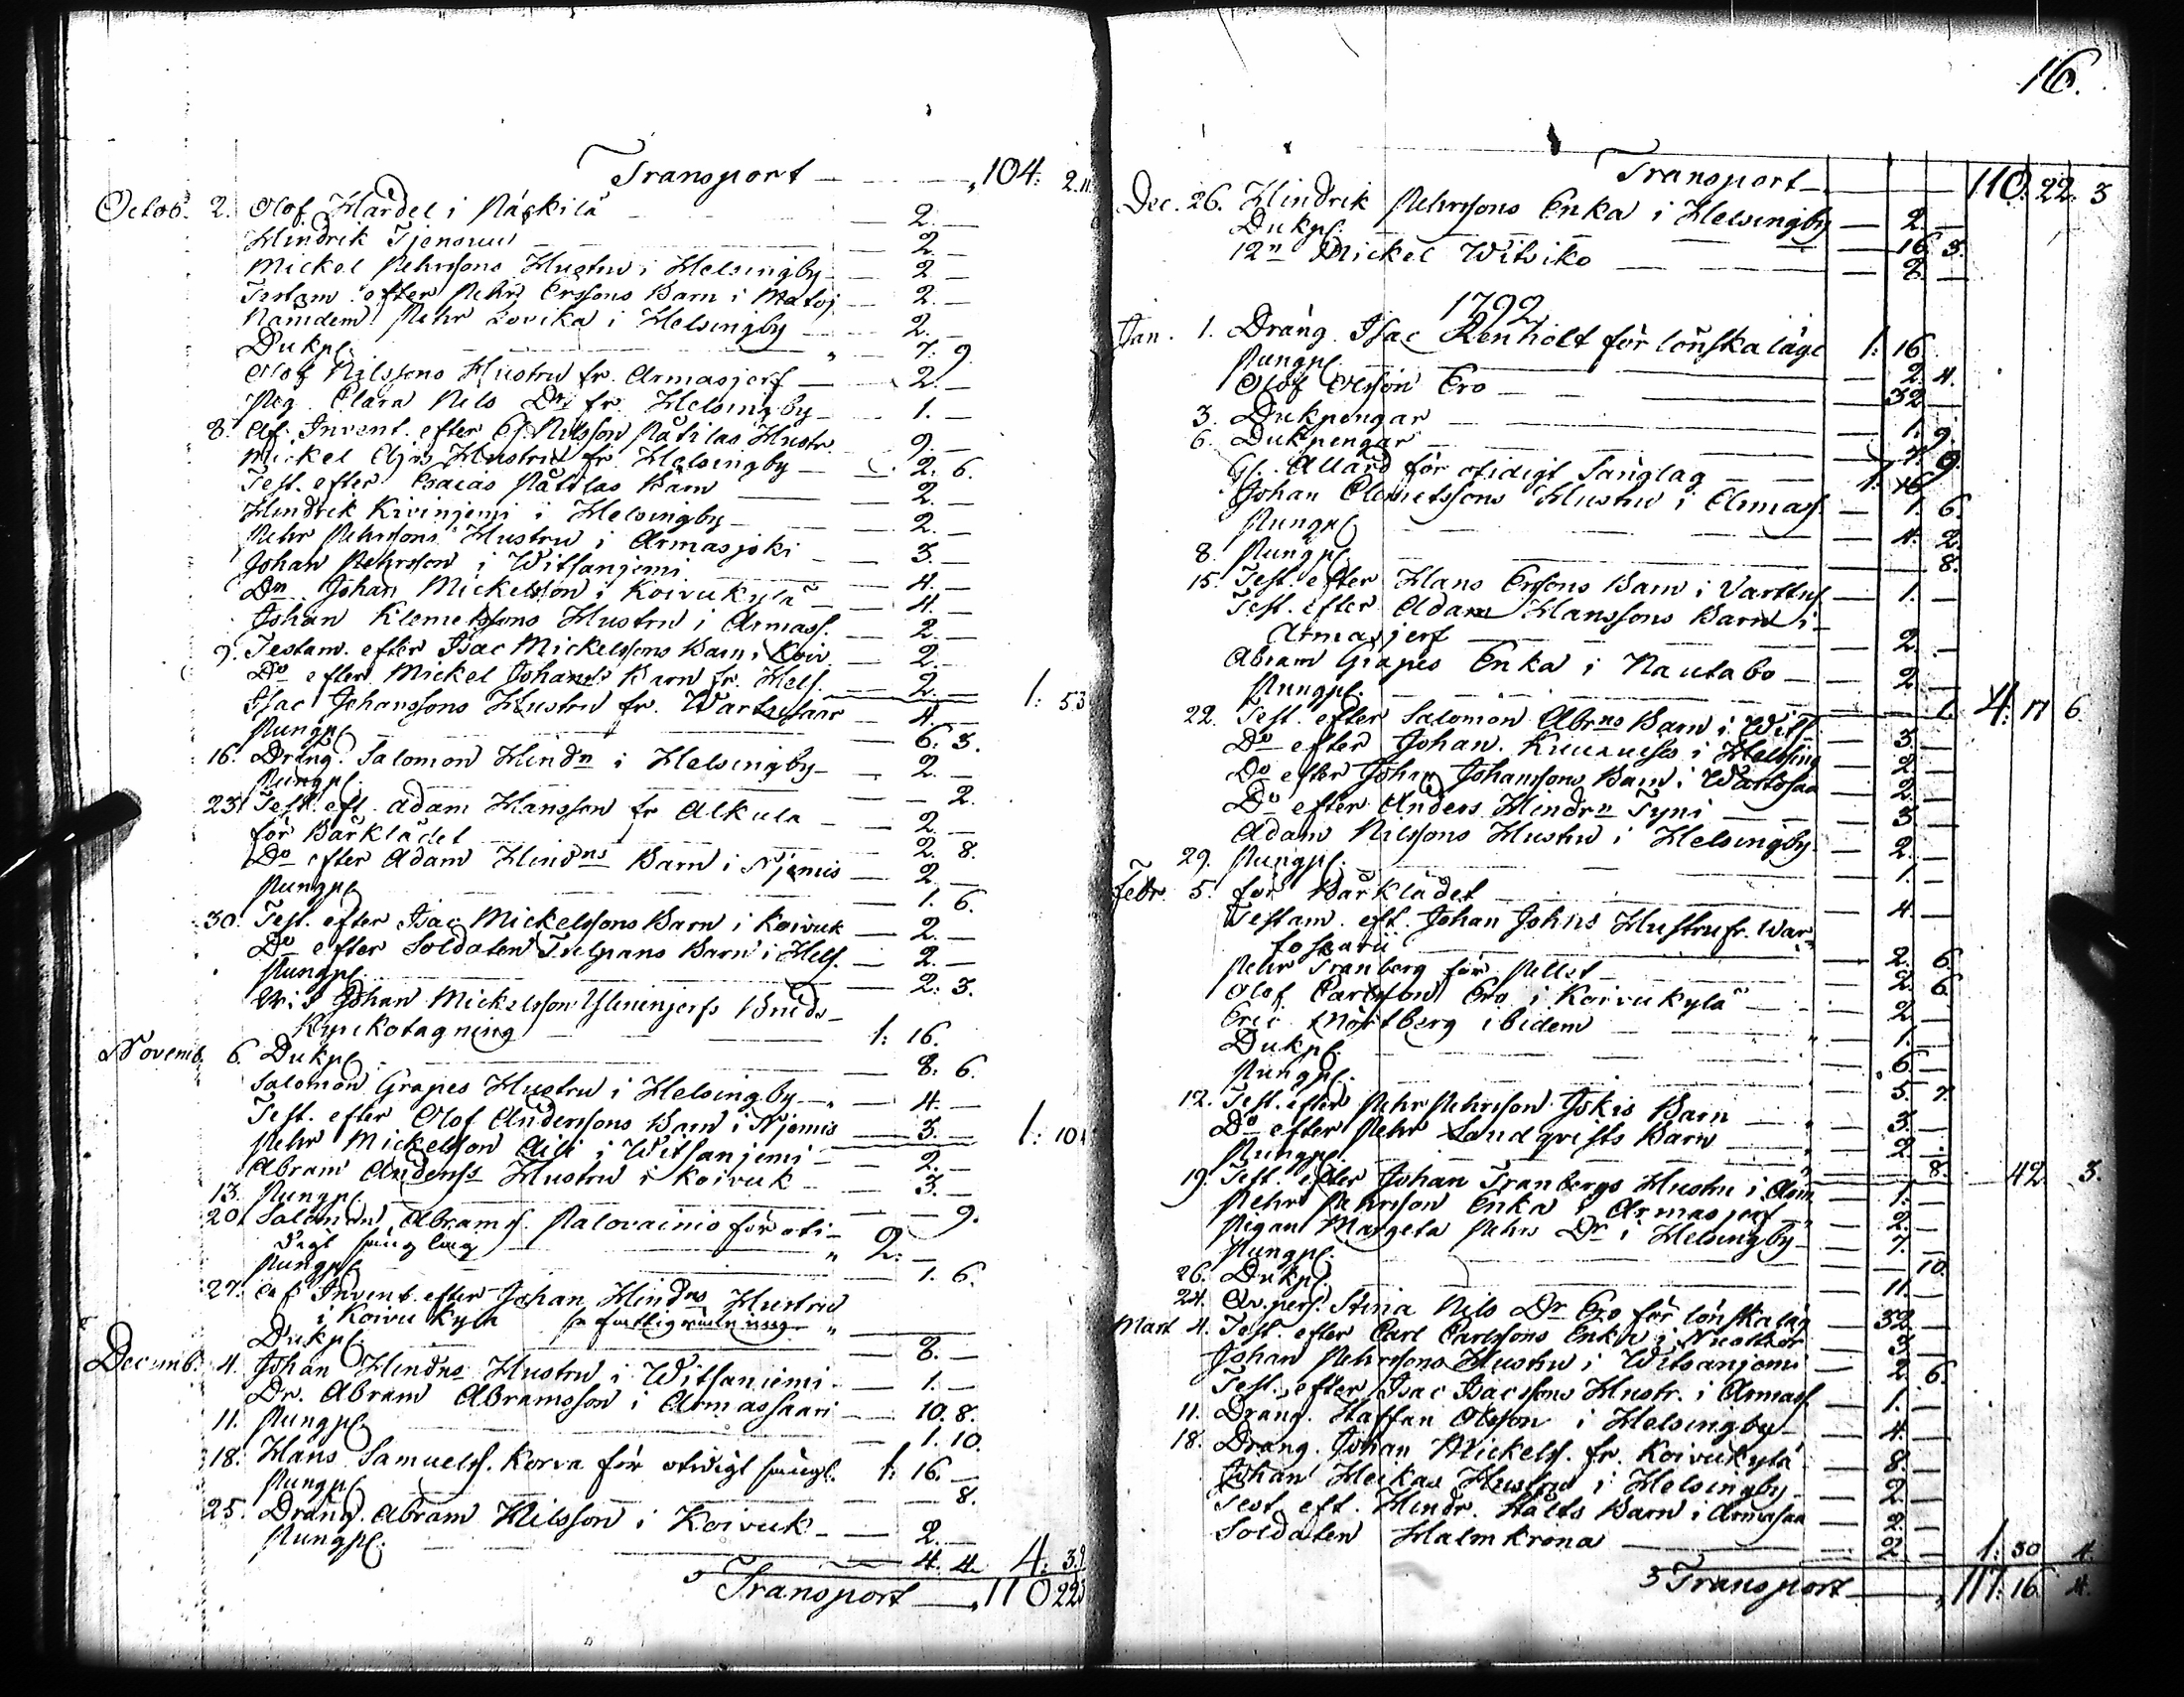 Transport — 104: 2. 11
Octob. 2. Olof Hardel i Päkkilä — 2. —
Hindrik Tjenouu — 2. —
Mickel Pehrssons Hustru i Helsingby — 2 —
Testam. efter Pehr Erssons Barn i Matoj — 2. —
Nämdem. Pehr Lovika i Helsingby — 2. —
Dukp. — 7. 9.
Olof Nilssons Hustru fr. Armasjerf — 2. —
Pig. Clara Nils Dr fr. Helsingby — 1. —
8. Af Invent. efter Ol. Nilsson Pätilas Hustr. 9. —
Mickel Hustru fr. Helsingby — 2. 6.
Test. efter Esaias Pätilas Barn — 2. —
Hindrik Kiviniemi i Helsingby — 2. —
Pehr Pehrssons Hustru i Armasjoki — 3. —
Johan Pehrsson i Witsaniemi — 4. —
Dn Johan Mickelsson i Koivukylä — 4. —
Johan Klemetssons Hustru i Armass. — 2. —
9. Testam. efter Isac Mickelssons Barn i Koiv. — 2. —
Do efter Mickel Johans Barn fr. Hels. — 2. — 1: 53
Isac Johanssons Hustru fr. Wartosaar — 4. —
Pungp. — 6. 3.
16. Dräng. Salomon Hindn i Helsingby — 2. —
Pungp. — 2.
23. Test. eft. Adam Hansson fr Alkula — 2. —
för Bårklädet — 2. 8.
Do efter Adam Hindns Barn i Njemis — 2. —
Pungp. — 1. 6.
30. Test. efter Isac Mickelssons Barn i Koivuk — 2. —
Do efter Soldaten Tulpans Barn i Hels. — 2. —
Pungp. — 2. 3.
Johan Mickelsson Ylininjerfs Bruds-
Kyrkotagning — 1: 16.
Novemb. 6. Dukp. — 8. 6.
Salomon Grapes Hustru i Helsingby — 4. —
Test. efter Olof Anderssons Barn i Njemis — 3. — 1: 10
Pehr Mickelsson i Witsanjemi — 2. —
Abram Anderss Hustru i Koivuk — 3. —
13. Pungp. — 9.
20. Salomon Abrams. Palovainio för oti-
digt säng lag — 2. —
Pungp. — 1. 6.
27. af Invent. efter Johan Hindns Hustru
i Koivu kyla
Dukp. — 8. —
Decemb. 4. Johan Hindns Hustru i Witsaniemi — 1. —
Dr. Abram Abramsson i Armassaari — 10. 8.
11. Pungp. — 1. 10.
18. Hans Samuelss. Korva för otidigt sängl. 1: 16. —
Pungp. — 8.
25. Dräng. Abram Nilsson i Koivuk — 2. —
Pungp. — 4. 4. 4: 39
Transport — 110 22 3
16.
Transport — 110. 22. 3
Dec. 26. Hindrik Pehrssons Enka i Helsingby — 2. —
Dukp. — 16 3.
12n Mickel Witsiko — 2. —
1792
Jan. 1. Dräng Isac Renholt för lönskaläge 1: 16.
Pungp. — 2. 4.
Olof Olsson Ero — 32 —
3. Dukpengar — 1. 9.
6. Dukpengar — 7. 9.
Gl. Allard för otidigt Sänglag — 1: 16
Johan Clemetssons Hustru i Armass — 1. 6.
Pungp. — 4. 2.
8. Pungp. — 8.
15. Test. efter Hans Ersons Barn i Vartus — 1. —
Test. efter Adam Hanssons Barn i
Armasjerf — 2. —
Abram Grapes Enka i Nautabo — 2. —
Pungp. — 1. 4: 17 6.
22. Test. efter Salomon Abrns Barn i Wits. — 3. —
Do efter Johan i Helsing — 2. —
Do efter Johan Johanssons Barn i Wartosaa — 2. —
Do efter Anders Hindrn Tyni — 3 —
Adam Nilssons Hustru i Helsingby — 2. —
29. Pungp. — 1. —
Febr. 5. för Bårklädet — 4. —
Testam. eft. Johan Johns Hustru fr. War-
tosaari — 2. 6.
Pehr Tranberg för Pellet — 2. 6.
Olof Carlsson Ero i Koivukylä — 2 —
Eric Mörtberg ibidem — 1. —
Dukp. — 6. —
Pungp. — 5. 7.
12. Test. efter Pehr Pehrsson Jokis Barn — 3. —
Do efter Pehr Sandqvists Barn — 2 —
Pungp. — 8. 42 3.
19. Test. efter Johan Tranbergs Hustru i Arm — 1. —
Pehr Pehrsson Enka i Armasjerf — 2. —
Pigan Margeta Pehrs Dr i Helsingby — 7. —
Pungp. — 10.
26. Dukp. — 11. —
24. Qv.pers. Stina Nils Dr Ero för lönskaläg — 32 —
Mart 4. Test. efter Carl Carlssons Enka i — 3 —
Johan Pehrssons Hustru i Witsanjemi — 2 6.
Test. efter Isac Isacssons Hustr. i Armass — 1. —
11. Dräng. Staffan Olsson i Helsingby — 4 —
18. Dräng. Johan Mickelss. fr. Koivukylä — 8. —
Johan Heikas Hustru i Helsingby — 2 —
Test. eft. Hindr. Hälts Barn i Armasaa — 2. —
Soldaten Malmkrona — 2 — 1: 30 4.
Transport — 117: 16. 4.